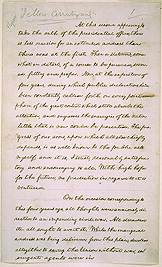 Fellow Countrymen:
At this second appearing to
take the oath of the presidential office, there
is less occasion for an extended address than
there was at the first. Then a statement, some-
what in detail, of a course to be pursued, seemed
fitting and proper. Now, at the expiration of
four years, during which public declarations
have been constantly called forth on every point and
phase of the great contest which still absorbs the
attention, and engrosses the energies of the nation,
little that is new could be presented. The pro-
gress of our arms, upon which all else chiefly
depends, is as well known to the public as to
myself; and it is, I trust, reasonably satisfac-
tory and encouraging to all. With high hope
for the future, no prediction in regard to it is
ventured.
On the occasion corresponding to
this four years ago, all thoughts were anxiously di-
rected to an impending civil war. All dreaded
it - all sought to avert it. While the inaugural
address was being delivered from this place, devoted
altogether to saving the Union without war, in-
surgent agents were in